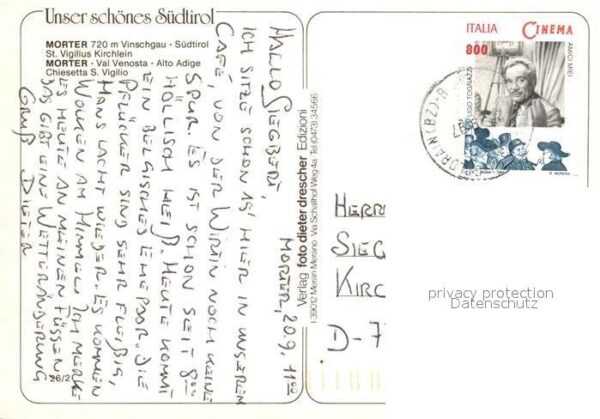 Unser schönes Südtirol
MORTER 720 m Vinschgau - Südtirol
St. Vigilius Kirchlein
MORTER - Val Venosta - Alto Adige
Chiesetta S. Vigilio
MORTER, 20.9. 11⁰⁰
HALLO SIEGBERT,
ICH SITZE SCHON 15' HIER IN UNSEREM
CAFÉ, VON DER WIRTIN NOCH KEINE
SPUR. ES IST SCHON SEIT 8⁰⁰
HÖLLISCH HEIß. HEUTE KOMMT
EIN BELGISCHES EHEPAAR. DIE
PFLÜCKER SIND SEHR FLEIßIG,
HANS LACHT WIEDER. ES KOMMEN
WOLKEN AM HIMMEL. ICH MERKE
ES HEUTE AN MEINEN FÜSSEN
DAS GIBT EINE WETTERÄNDERUNG
GRUß DIETER
26/2
Verlag foto dieter drescher Edizioni
I-39012 Meran Merano · Via Schaffhof Weg 4a · Tel. (0473) 34566
ITALIA CINEMA
800
AMICI MIEI
UGO TOGNAZZI
HERR
SIEG
KIRC
D-7
privacy protection
Datenschutz